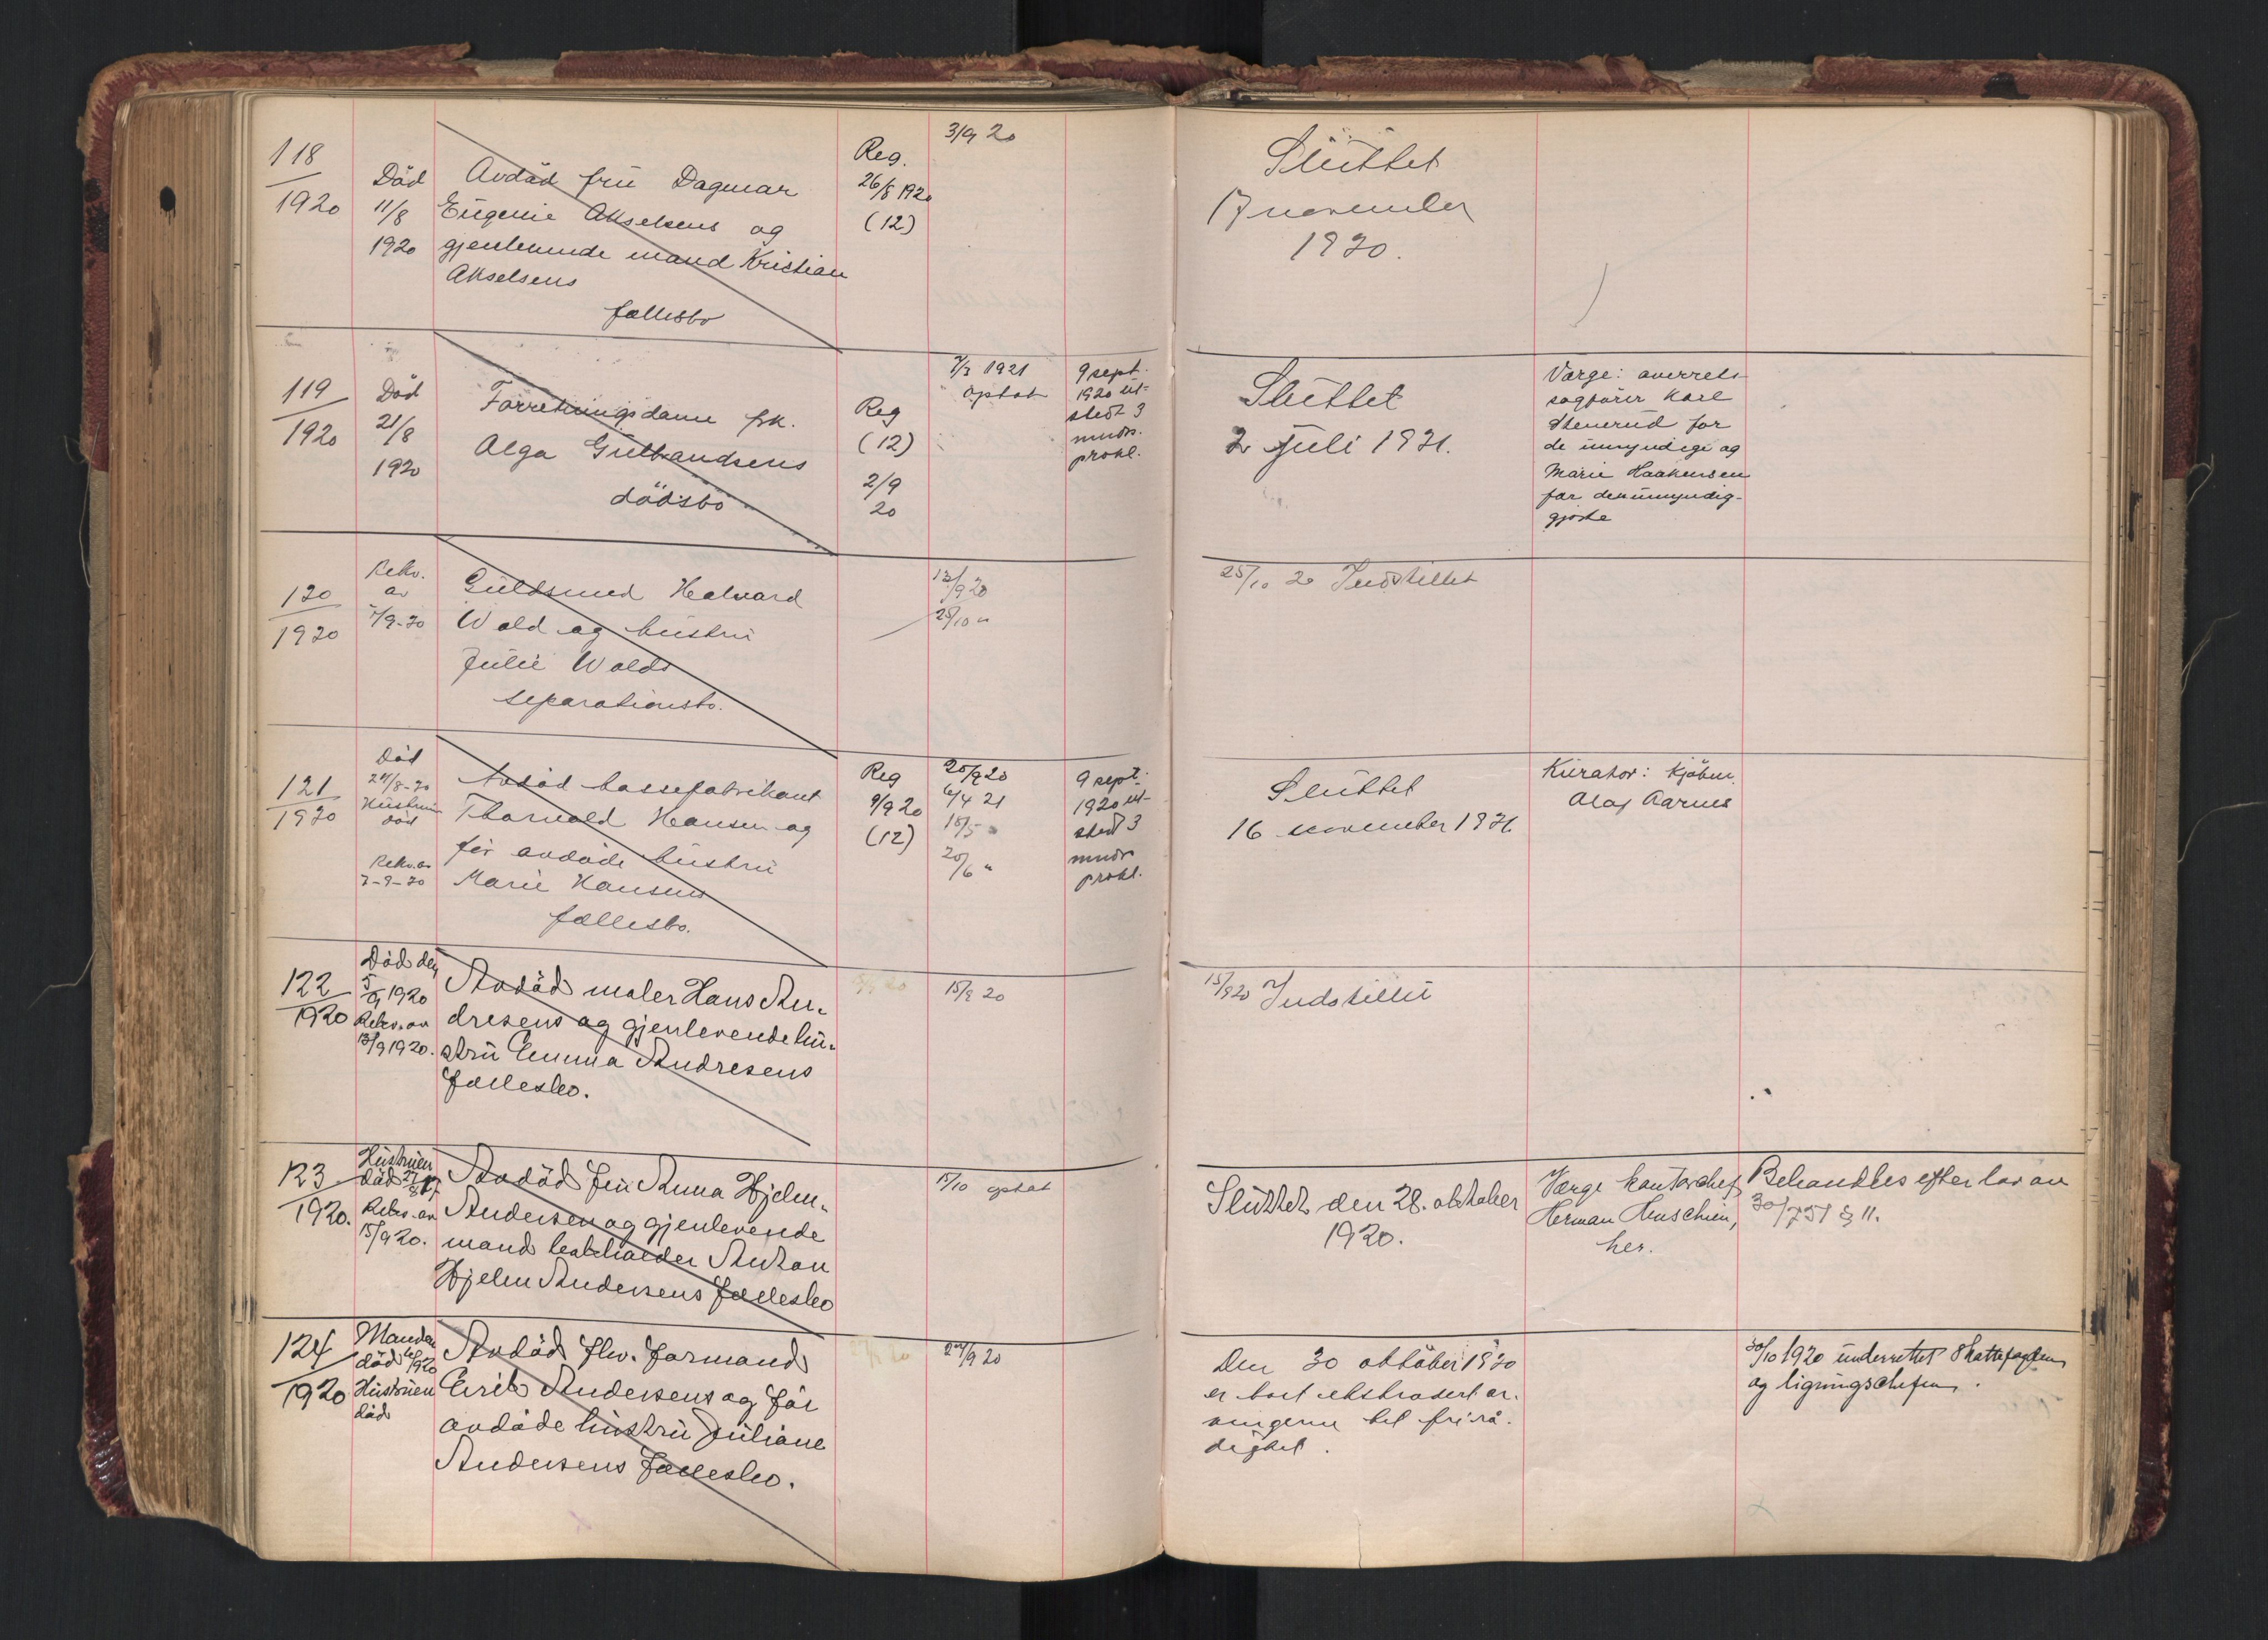 118
1920
Död
11/8
1920
Avdöd frü Dagmar
Eügenie Akselsens og
gjenlevende mand Kristian
Akselsens
fællesbo
Reg.
26/8 1920
(12)
3/9 20
Slüttet
17 november
1920.
119
1920
Död
21/8
1920
Forretningsdame frk.
Olga Gülbrandsens
dödsbo
Reg
(12)
2/9
20
7/3 1921
optat
9 sept.
1920 üt-
stedt 3
mndrs.
prokl.
Slüttet
2 jüli 1921.
Værge: overrets-
sagförer Karl
Stenerüd for
de ümyndige og
Marie Haakensen
for den ümyndig-
gjorte
120
1920
Rekv.
av
7/9-20
Güldsmed Halvard
Wold og hüstrü
Jülie Wolds
separationsbo.
13/9 20
25/10 "
25/10 20 Indstillet
121
1920
Död
24/8-20
Hüstrüen
död
Rekv. av
7-9-20
Avdöd kassefabrikant
Thorvald Hansen og
för avdöde hüstrü
Marie Hansens
fællesbo.
Reg
9/9 20
(12)
20/9 20
6/4 21
18/5 "
20/6 "
9 sept.
1920 üt-
stedt 3
mndrs
prokl.
Slüttet
16 november 1921
Kürator: kjöbm.
Olaf Aarnes
122
1920
Död den
5/9 1920
Rekv. av
13/9 1920.
Avdöd maler Hans An-
dresens og gjenlevende hü-
strü Emma Andresens
Fællesbo.
15/9 20
15/9 20 Indstillet
123
1920.
Hüstrüen
död
Rekv. av
15/9 20.
Avdöd frü Anna Hjelm-
Andersen og gjenlevende
mand bokholder Anton
Hjelm Andersens fællesbo
15/10 optat
Slüttet den 28. oktober
1920.
Værge kontorchef
Herman
her.
Behandles efter lov av
30/7 51 § 11.
124
1920
Manden
död
1920
Hüstrüen
död
Avdöd fhv. formand
Erik Andersens og för
avdöde hüstrü Jüliane
Andersens fællesbo.
24/9 20
Den 30 oktober 1920
er boet ekstradert ar-
vingerne til fri rå-
dighet.
30/10 1920 ünderrettet Skattefogden
og ligningschefen.